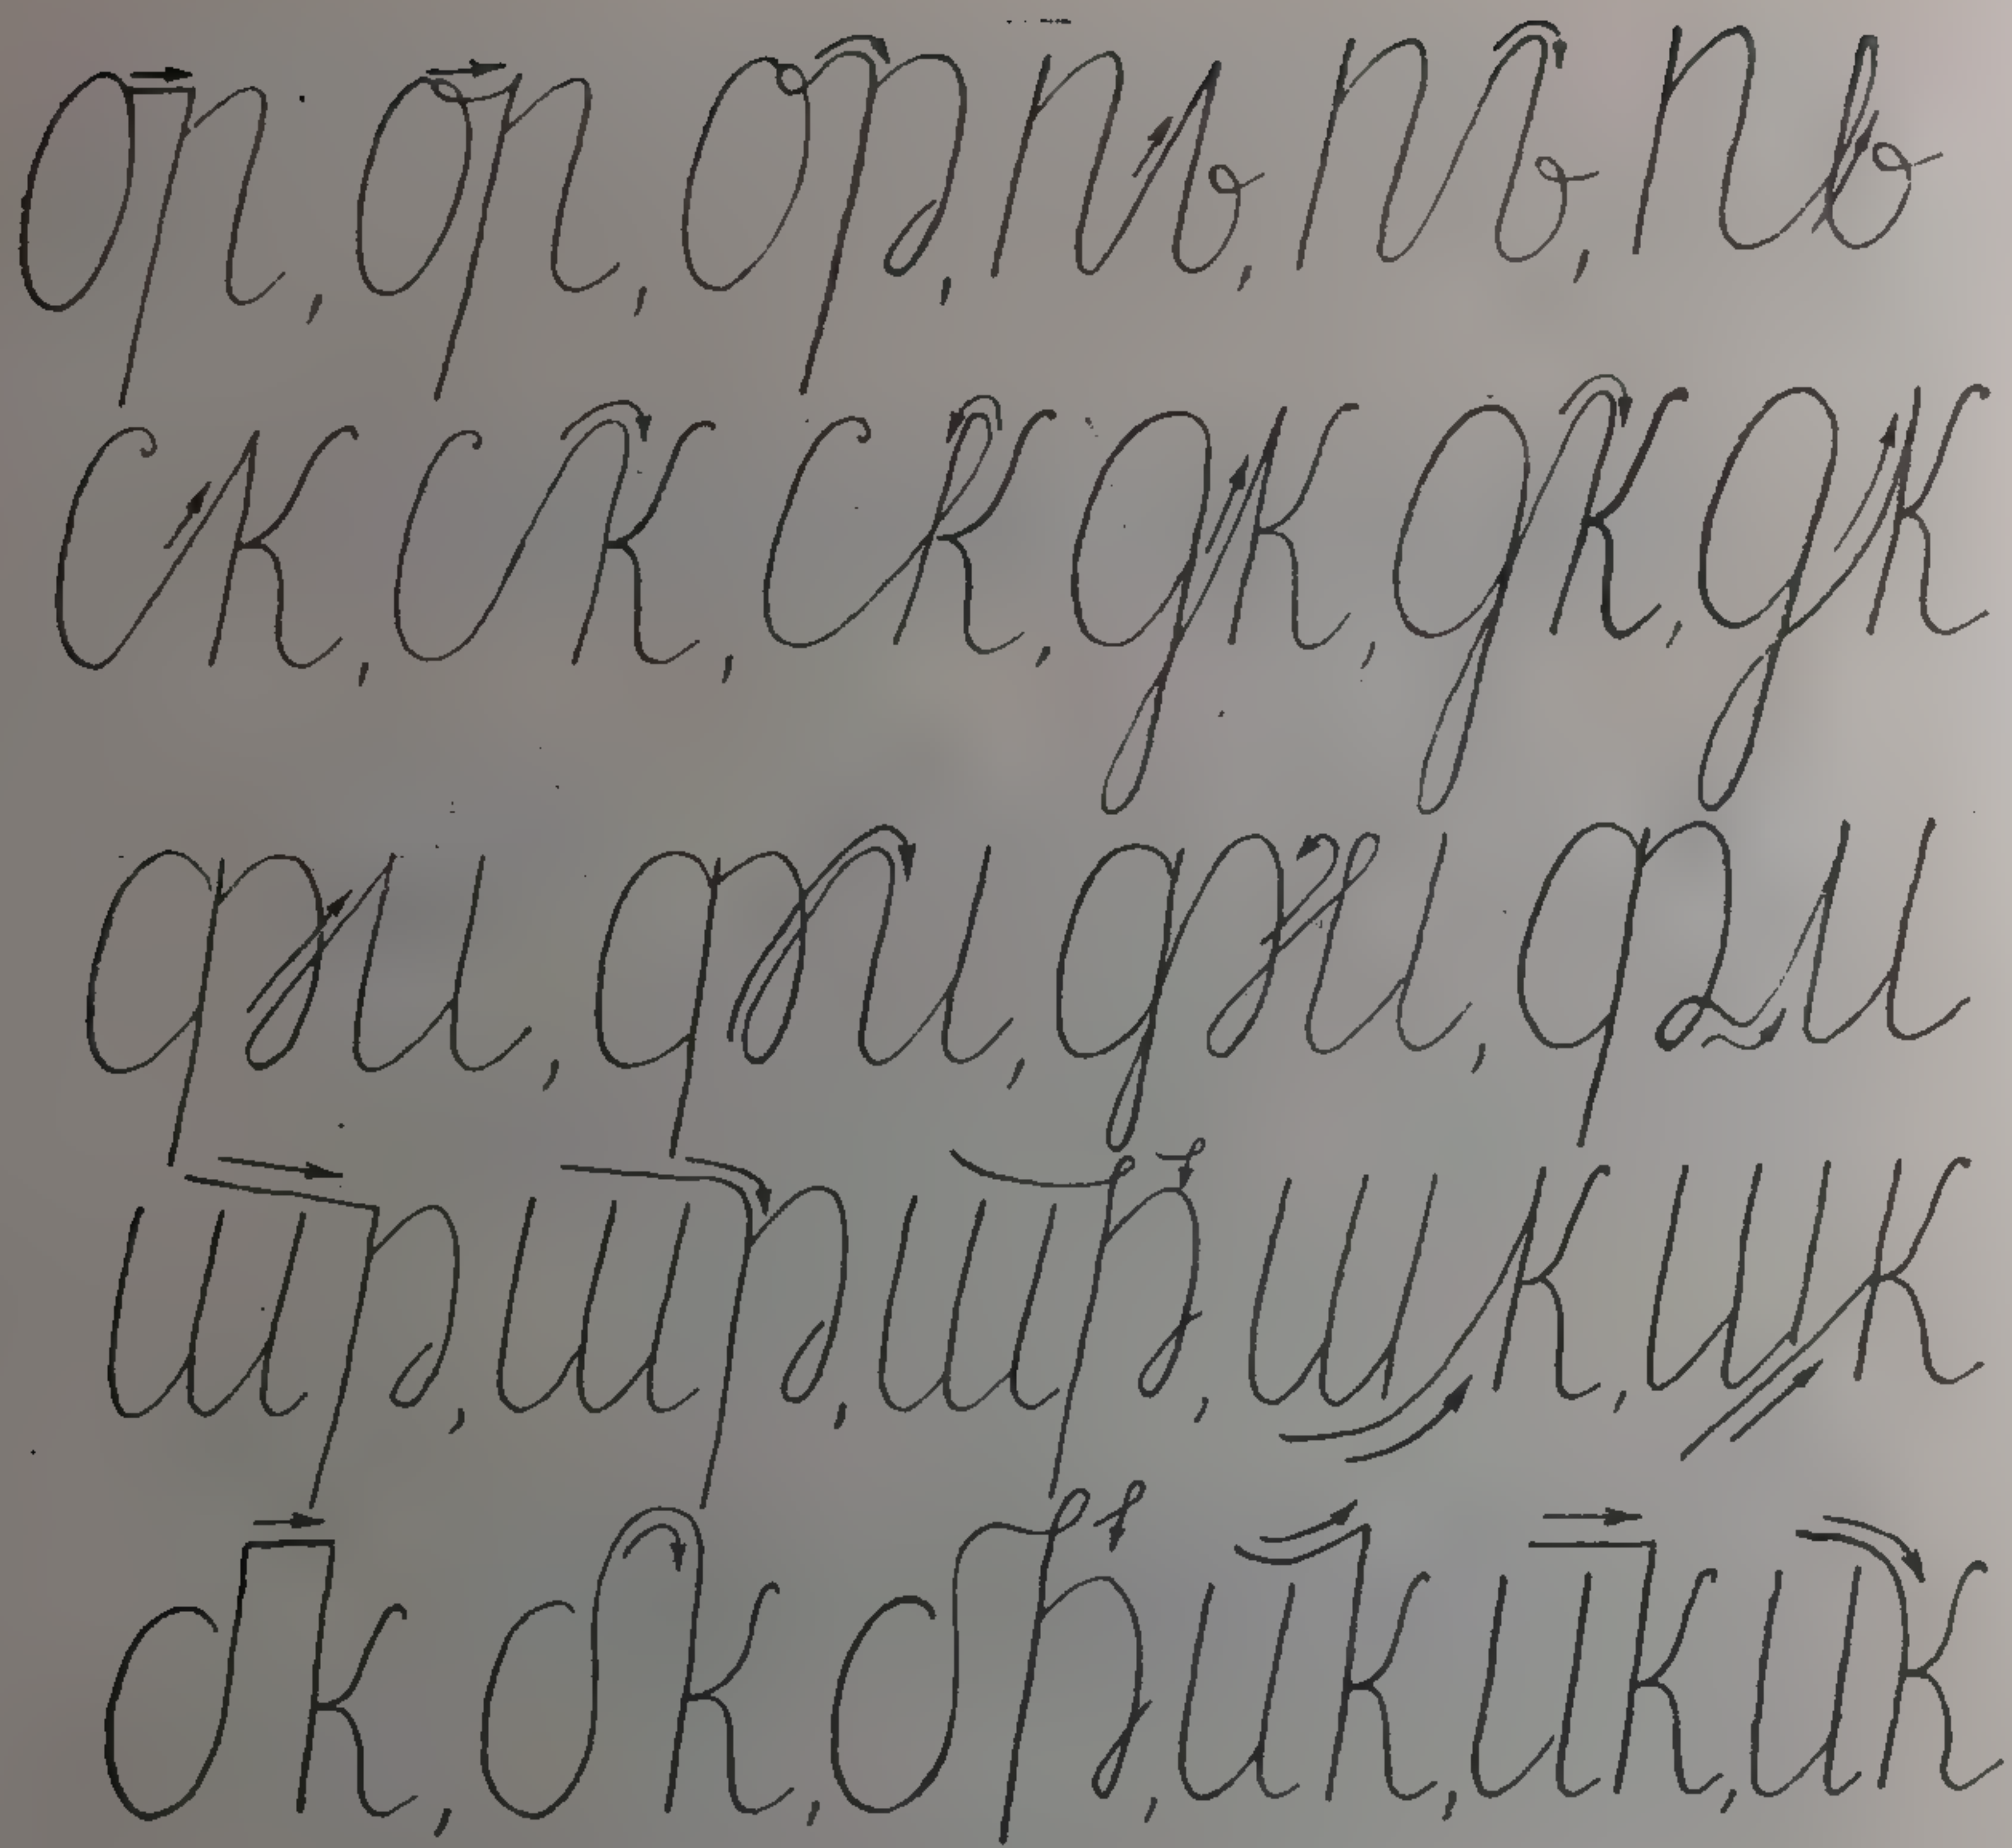 ор, ор, ор, пь, пь, пь
ск, ск, ск, дк, дк, дк
фи, фи, фи, фи
тр, тр, тр, шк, шк
бк, бк, бр, йк, йк, йк